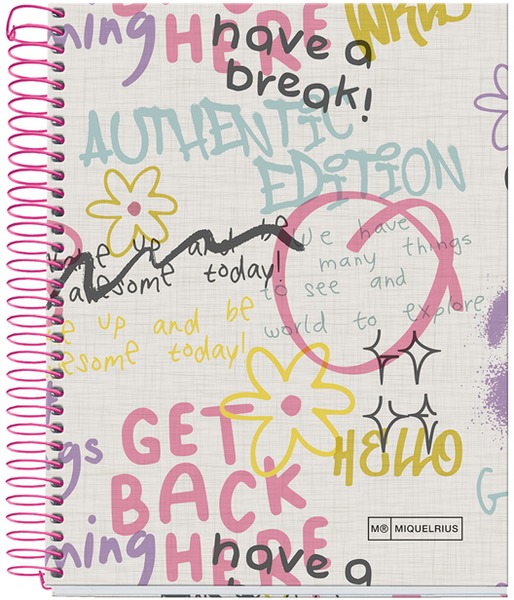 ning HERE
have a
break!
WKN
AUTHENTIC
EDITION
wake up and be
awesome today!
We have
many things
to see and
world to explore
e up and be
esome today!
GET
BACK
HERE
HELLO
gs
ning
have a
M® MIQUELRIUS